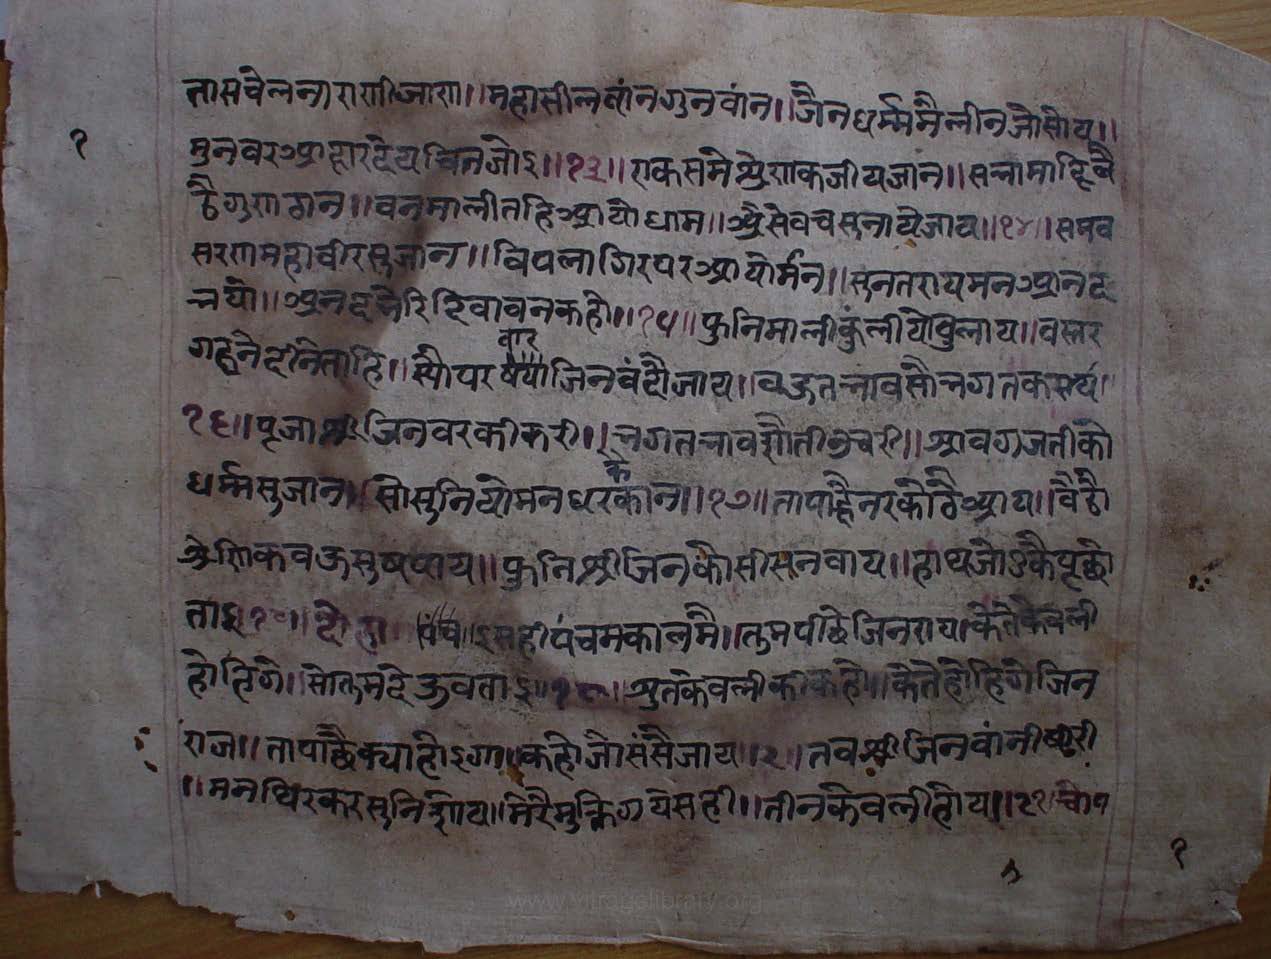 तासचेलनाराणीजाण।।महासीलवांनगुनवांन।।जैनधर्ममैलीनजोसोय।।
मुनवरआहारदेयचितजोइ।।१३।।एकसमेश्रेणकजीयजान।।सभामाहिवै
ठैगुणठान।।वनमालीतहिआयोधाम।।अैसेवचसुनायेजाय।।१४।।समव
सरणमहावीरसुजान।।विपलागिरपरआयोर्मन।।सुनतरायमनआनद
भयो।।१५।।फुनिमालीकुंलीयेवुलाय।।वस्तर
गहनेदीनेताहि।।जिनवंदौजाय।।वऊतभावसौभगत
१६।।पूजाश्रीजिनवरकीकरी।।भगतभाव।।श्रावगजतीको
धर्म्मसुजान।सोसुनियोमनधरकेकान।।१७।।तापाछैनरकोठैआय।।वैठौ
श्रेणिकवऊसुषपाय।।फुनिश्रीजिनकौसीसनवाय।।हाथजोडकैपूछो
ताइ१८।।दोहा।।इसहीपंचमकालमै।।तुमपीछेजिनराय।केतेकेवली
होहिगे।सोतुमदेऊवताइ।।१९।।श्रुतकेवलीकीकहो।।केतेहोहिगेजिन
राज।।तापाछैक्याहोइगा।।कहोजोसंसैजाय।।२।।तवश्रीजिनवांनीषिरी
।।मनथिरकरसुनि।।मेरैमुक्तिगयेसही।।तीनकेवलीहोय।।२१
१
१
www.vitragalibrary.org